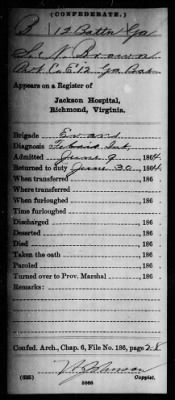 (CONFEDERATE.)
B 12 Battn Ga
N Brown
Co. E 12 Ga Batt
Appears on a Register of
Jackson Hospital,
Richmond, Virginia.
Brigade Evans
Diagnosis Febris Int.
Admitted June 9, 1864
Returned to duty June 30, 1864.
When transferred , 186
Where transferred
When furloughed , 186
Time furloughed
Discharged , 186
Deserted , 186
Died , 186
Taken the oath , 186
Paroled , 186
Turned over to Prov. Marshal , 186
Remarks:
Confed. Arch., Chap. 6, File No. 186, page 28
Johnson
(635) Copyist.